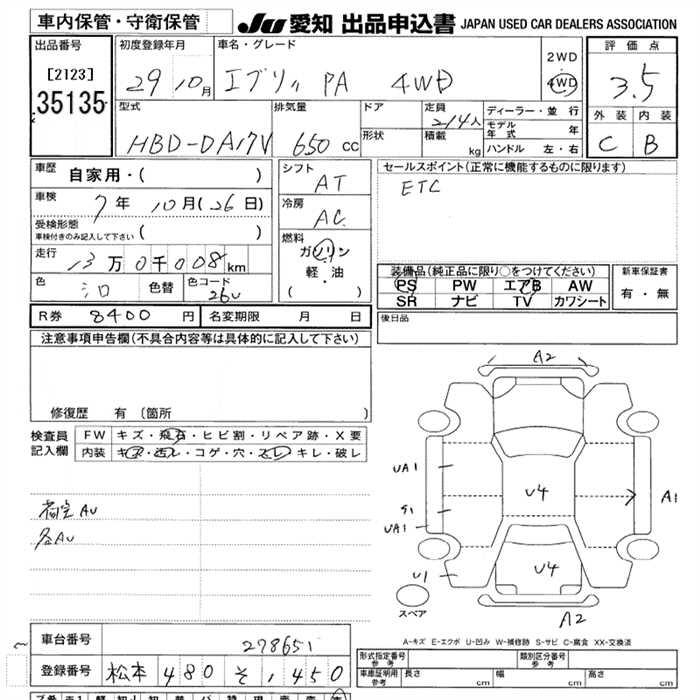 車内保管・守衛保管
JU 愛知 出品申込書 JAPAN USED CAR DEALERS ASSOCIATION
出品番号
[2123]
35135
初度登録年月 車名・グレード
29 10月 PA 4WD
2WD
4WD
評価点
3.5
外装 内装
C B
型式 排気量 ドア 定員
HBD-DA17V 650 cc 2/4人
形状 積載 kg
ディーラー・並行
モデル年式 年
ハンドル 左・右
車歴 自家用・( )
車検 7年 10月(26日)
受検形態
車検付きのみ記入して下さい ( )
走行 13万0千008km
色 シロ 色替 色コード 26U
シフト
AT
冷房
AC
燃料
ガソリン
軽・油
( )
セールスポイント(正常に機能するものに限ります)
ETC
装備品(純正品に限り○をつけてください)
PS PW エアB AW
SR ナビ TV カワシート
新車保証書
有・無
R券 8400 円 名変期限 月 日
後日品
注意事項申告欄(不具合内容等は具体的に記入して下さい)
修復歴 有 (箇所 )
検査員記入欄
FW キズ・飛石・ヒビ割・リペア跡・X要
内装 キズ・汚レ・コゲ・穴・スレ・キレ・破レ
荷室AU
各AU
A2
UA1
U4
A1
S1
UA1
U4
U1
スペア
A2
A-キズ E-エクボ U-凹み W-補修跡 S-サビ C-腐食 XX-交換済
車台番号 278651
登録番号 松本 480 そ 450
形式指定番号 参考 類別区分番号 参考
車庫証明用 参考 長さ cm 幅 cm 高さ cm